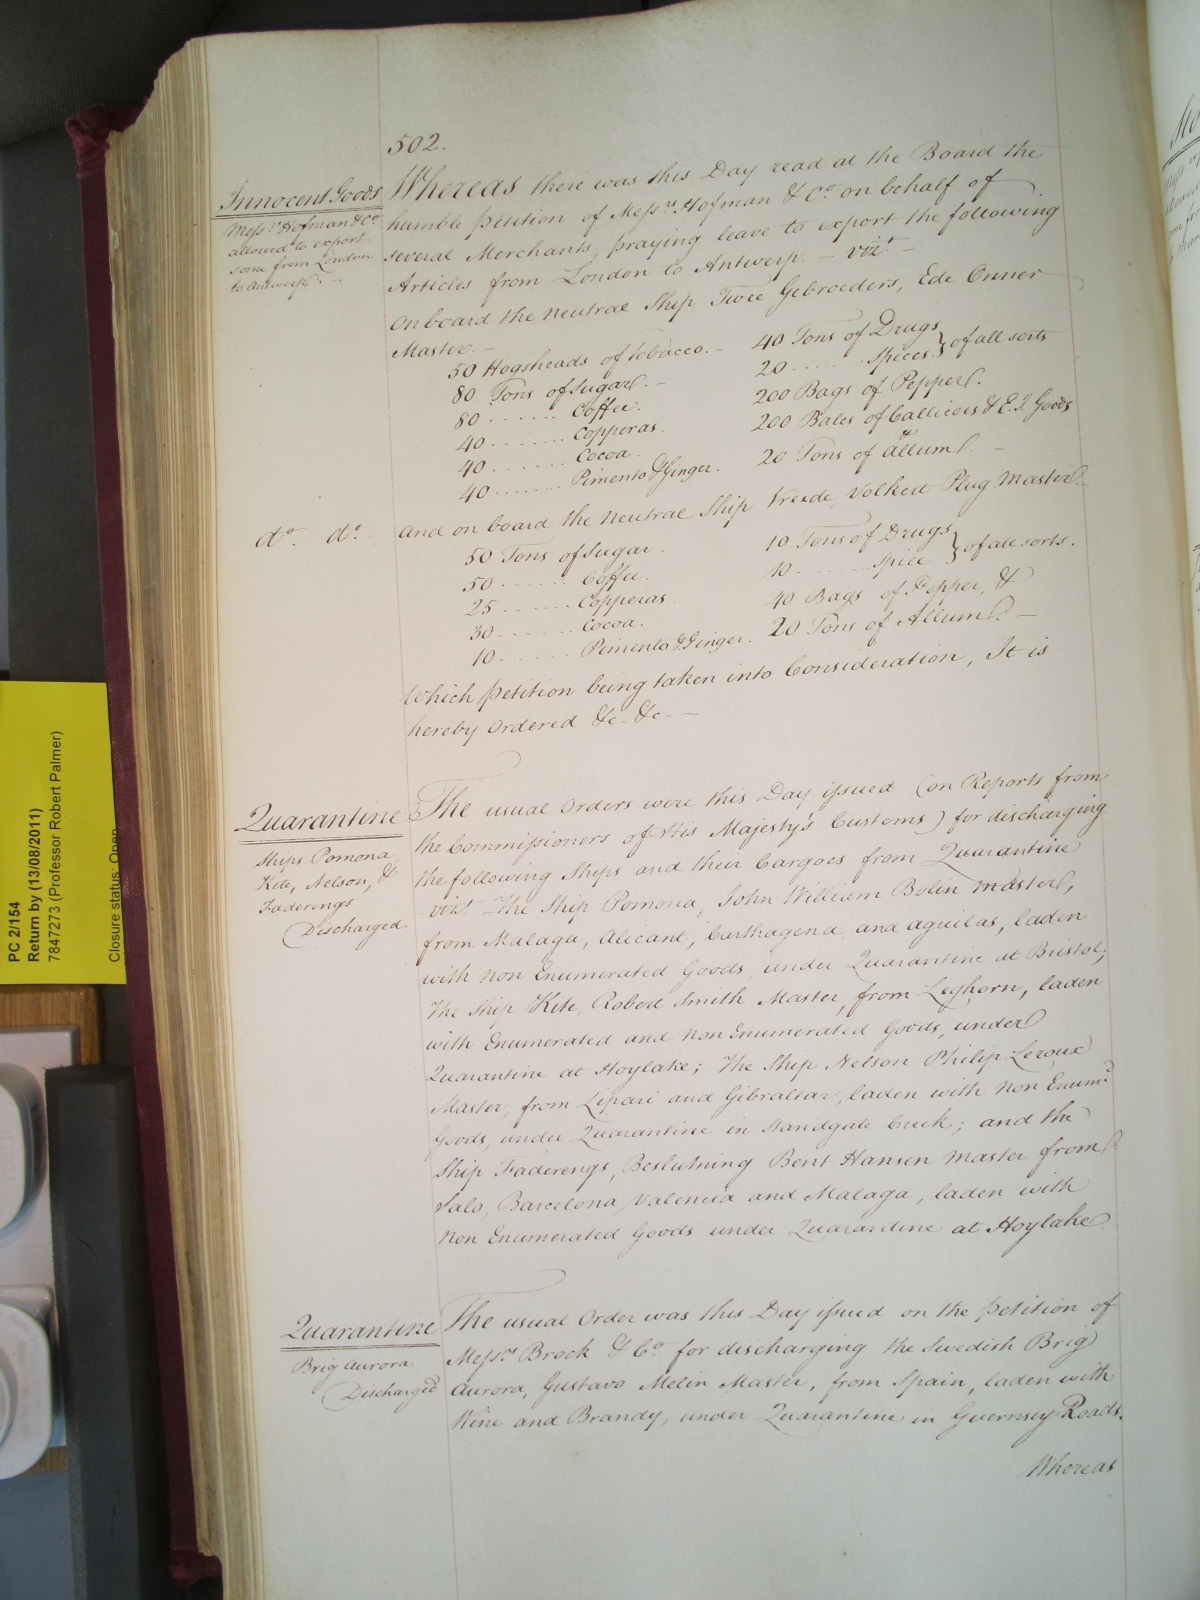 502.
Innocent Goods
Messrs. Hofman & Co.
allowed to export
some from London
to Antwerp. –
Whereas there was this Day read at the Board the
humble Petition of Messrs. Hofman & Co. on behalf of
several Merchants, praying leave to export the following
Articles from London to Antwerp. – vizt. –
On board the neutral Ship Twee Gebroeders, Ede Onner
Master. –
50 Hogsheads of tobacco. –
80 Tons of Sugar. –
80 ....... Coffee.
40 ....... Copperas.
40 ....... Cocoa.
40 ....... Pimento & Ginger.
40 Tons of Drugs
20 ...... Spices } of all sorts
200 Bags of Pepper.
200 Bales of Callicoes & E. I. Goods
&
20 Tons of Allum. –
do. do. And on board the neutral Ship Vreede, Volkert Plug Master. –
50 Tons of Sugar.
50 ...... Coffee.
25 ...... Copperas
30 ...... Cocoa.
10 ...... Pimento & Ginger.
10 Tons of Drugs
10 ...... Spice } of all sorts.
40 Bags of Pepper, &
20 Tons of Allum. –
Which Petition being taken into Consideration, It is
hereby Ordered &c. &c. –
Quarantine
Ships Pomona,
Kite, Nelson, &
Faderengs
Discharged.
The usual Orders were this Day issued (on Reports from
the Commissioners of His Majesty's Customs) for discharging
the following Ships and their Cargoes from Quarantine
vizt. The Ship Pomona, John William Bolin Master,
from Malaga, Alicant, Carthagena, and Aguilas, laden
with non Enumerated Goods, under Quarantine at Bristol;
The Ship Kite, Robert Smith Master, from Leghorn, laden
with Enumerated and non Enumerated Goods, under
Quarantine at Hoylake; The Ship Nelson Philip Leroux
Master, from Lipari and Gibraltar, laden with non Enumd.
Goods, under Quarantine in Standgate Creek; and the
Ship Faderengs, Beslutning Bent Hansen Master from
Salo, Barcelona, Valencia and Malaga, laden with
non Enumerated Goods under Quarantine at Hoylake.
Quarantine
Brig Aurora
Discharged
The usual Order was this Day issued on the Petition of
Messrs. Brock & Co. for discharging the Swedish Brig
Aurora, Gustavo Melin Master, from Spain, laden with
Wine and Brandy, under Quarantine in Guernsey Roads.
Whereas
PC 2/154
Return by (13/08/2011)
7847273 (Professor Robert Palmer)
Closure status: Open